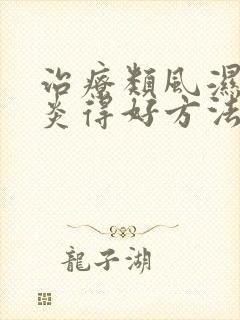 治療類風濕
炎得好方法
龍子湖